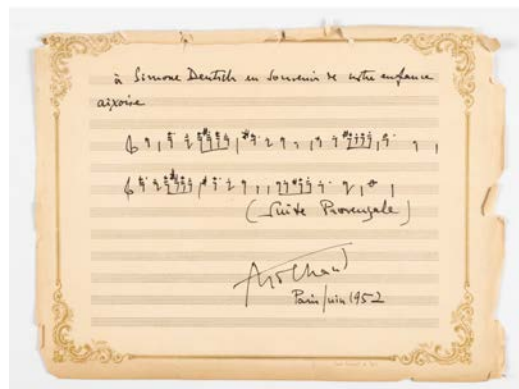 à Simone Deutsch en souvenir de notre enfance
aixoise
(Suite Provençale)
Milhaud
Paris/juin 1952